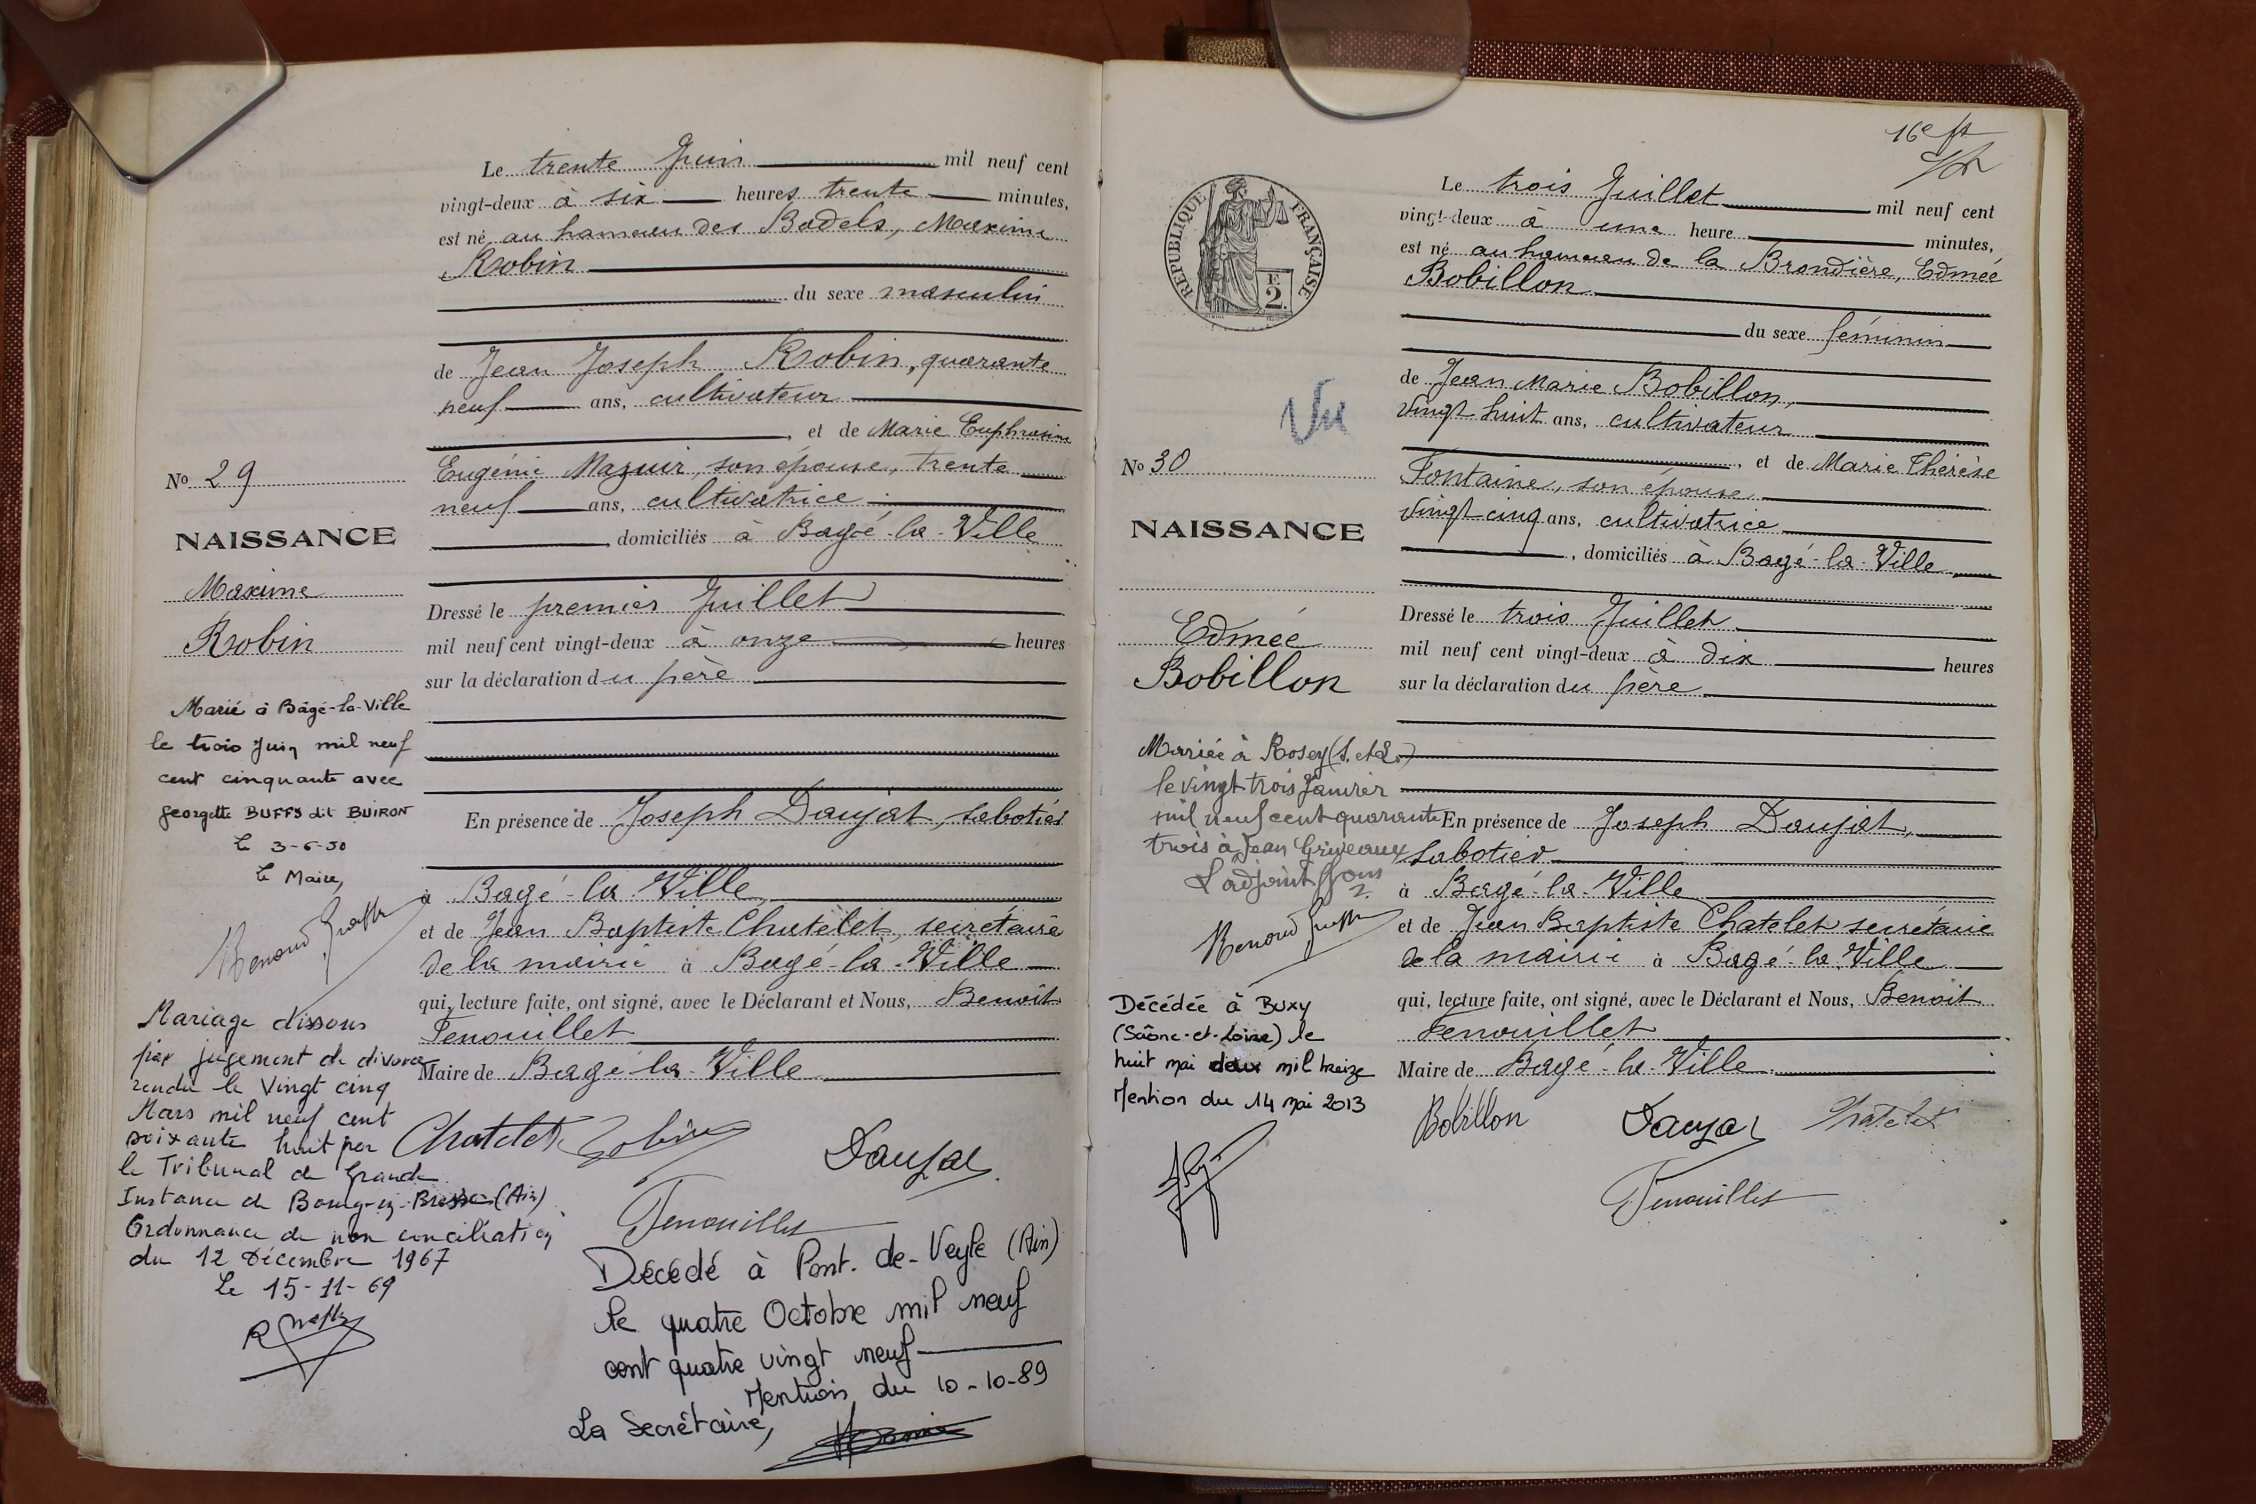 Le trente Juin mil neuf cent
vingt-deux à six heures trente minutes,
est né au hameau des Badels, Maxime
Robin
du sexe masculin
de Jean Joseph Robin, quarante
neuf ans, cultivateur
, et de Marie Euphrosine
Eugénie Mazuir, son épouse, trente
neuf ans, cultivatrice
, domiciliés à Bagé-la-Ville
Dressé le premier Juillet
mil neuf cent vingt-deux à onze heures
sur la déclaration du père
En présence de Joseph Daujat, sabotier
à Bagé-la-Ville
et de Jean Baptiste Chatelet, secrétaire
de la mairie à Bagé-la-Ville
qui, lecture faite, ont signé, avec le Déclarant et Nous, Benoit
Fenouillet
Maire de Bagé-la-Ville
Chatelet Robin Daujat
Fenouillet
Décédé à Pont-de-Veyle (Ain)
le quatre Octobre mil neuf
cent quatre vingt neuf
Mention du 10-10-89
La Secrétaire,
No 29
NAISSANCE
Maxime
Robin
Marié à Bâgé-la-Ville
le trois Juin mil neuf
cent cinquante avec
Georgette BUFFY dit BUIRON
le 3-6-50
Le Maire,
Mariage dissous
par jugement de divorce
rendu le Vingt cinq
Mars mil neuf cent
soixante huit par
le Tribunal de Grande
Instance de Bourg-en-Bresse (Ain)
Ordonnance de non conciliation
du 12 Décembre 1967
Le 15-11-69
16e ft
RÉPUBLIQUE FRANÇAISE
2 F.
Le trois Juillet mil neuf cent
vingt-deux à une heure minutes,
est né au hameau de la Brondière, Edmée
Bobillon
du sexe féminin
de Jean Marie Bobillon,
vingt huit ans, cultivateur
, et de Marie Thérèse
Fontaine, son épouse
vingt cinq ans, cultivatrice
, domiciliés à Bagé-la-Ville
Dressé le trois Juillet
mil neuf cent vingt-deux à dix heures
sur la déclaration du père
En présence de Joseph Daujat,
sabotier
à Bagé-la-Ville
et de Jean Baptiste Chatelet secrétaire
de la mairie à Bagé-la-Ville
qui, lecture faite, ont signé, avec le Déclarant et Nous, Benoit
Fenouillet
Maire de Bagé-la-Ville
Bobillon Daujat Chatelet
Fenouillet
Vu
No 30
NAISSANCE
Edmée
Bobillon
Mariée à Rosey (S. et L.)
le vingt trois Janvier
mil neuf cent quarante
trois à Jean Griveaux
L'adjoint
Décédée à BUXY
(Saône-et-Loire) le
huit mai deux mil treize
Mention du 14 mai 2013